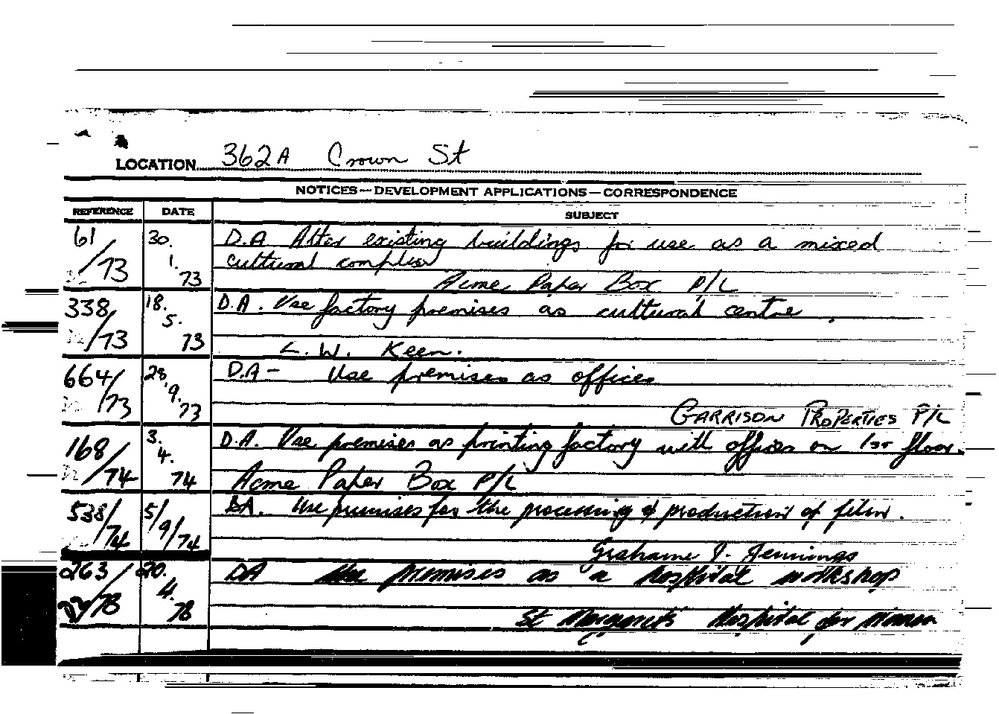 LOCATION 362A Crown St
NOTICES—DEVELOPMENT APPLICATIONS—CORRESPONDENCE
REFERENCE DATE SUBJECT
61/73 30.1.73 D.A Alter existing buildings for use as a mixed
cultural complex
Acme Paper Box P/L
338/73 18.5.73 D.A. Use factory premises as cultural centre.
L.W. Keen.
664/73 28.9.73 D.A- Use premises as offices
GARRISON PROPERTIES P/L
168/74 3.4.74 D.A. Use premises as printing factory with offices on 1st floor.
Acme Paper Box P/L
538/74 5/9/74 DA. Use premises for the processing & production of film.
Grahame J. Jennings
263/78 20.4.78 DA Use premises as a hospital workshop
St Margaret's Hospital for Women